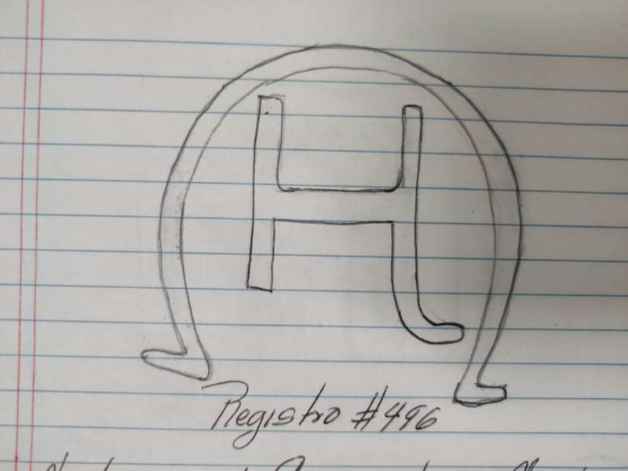 H
Registro #496